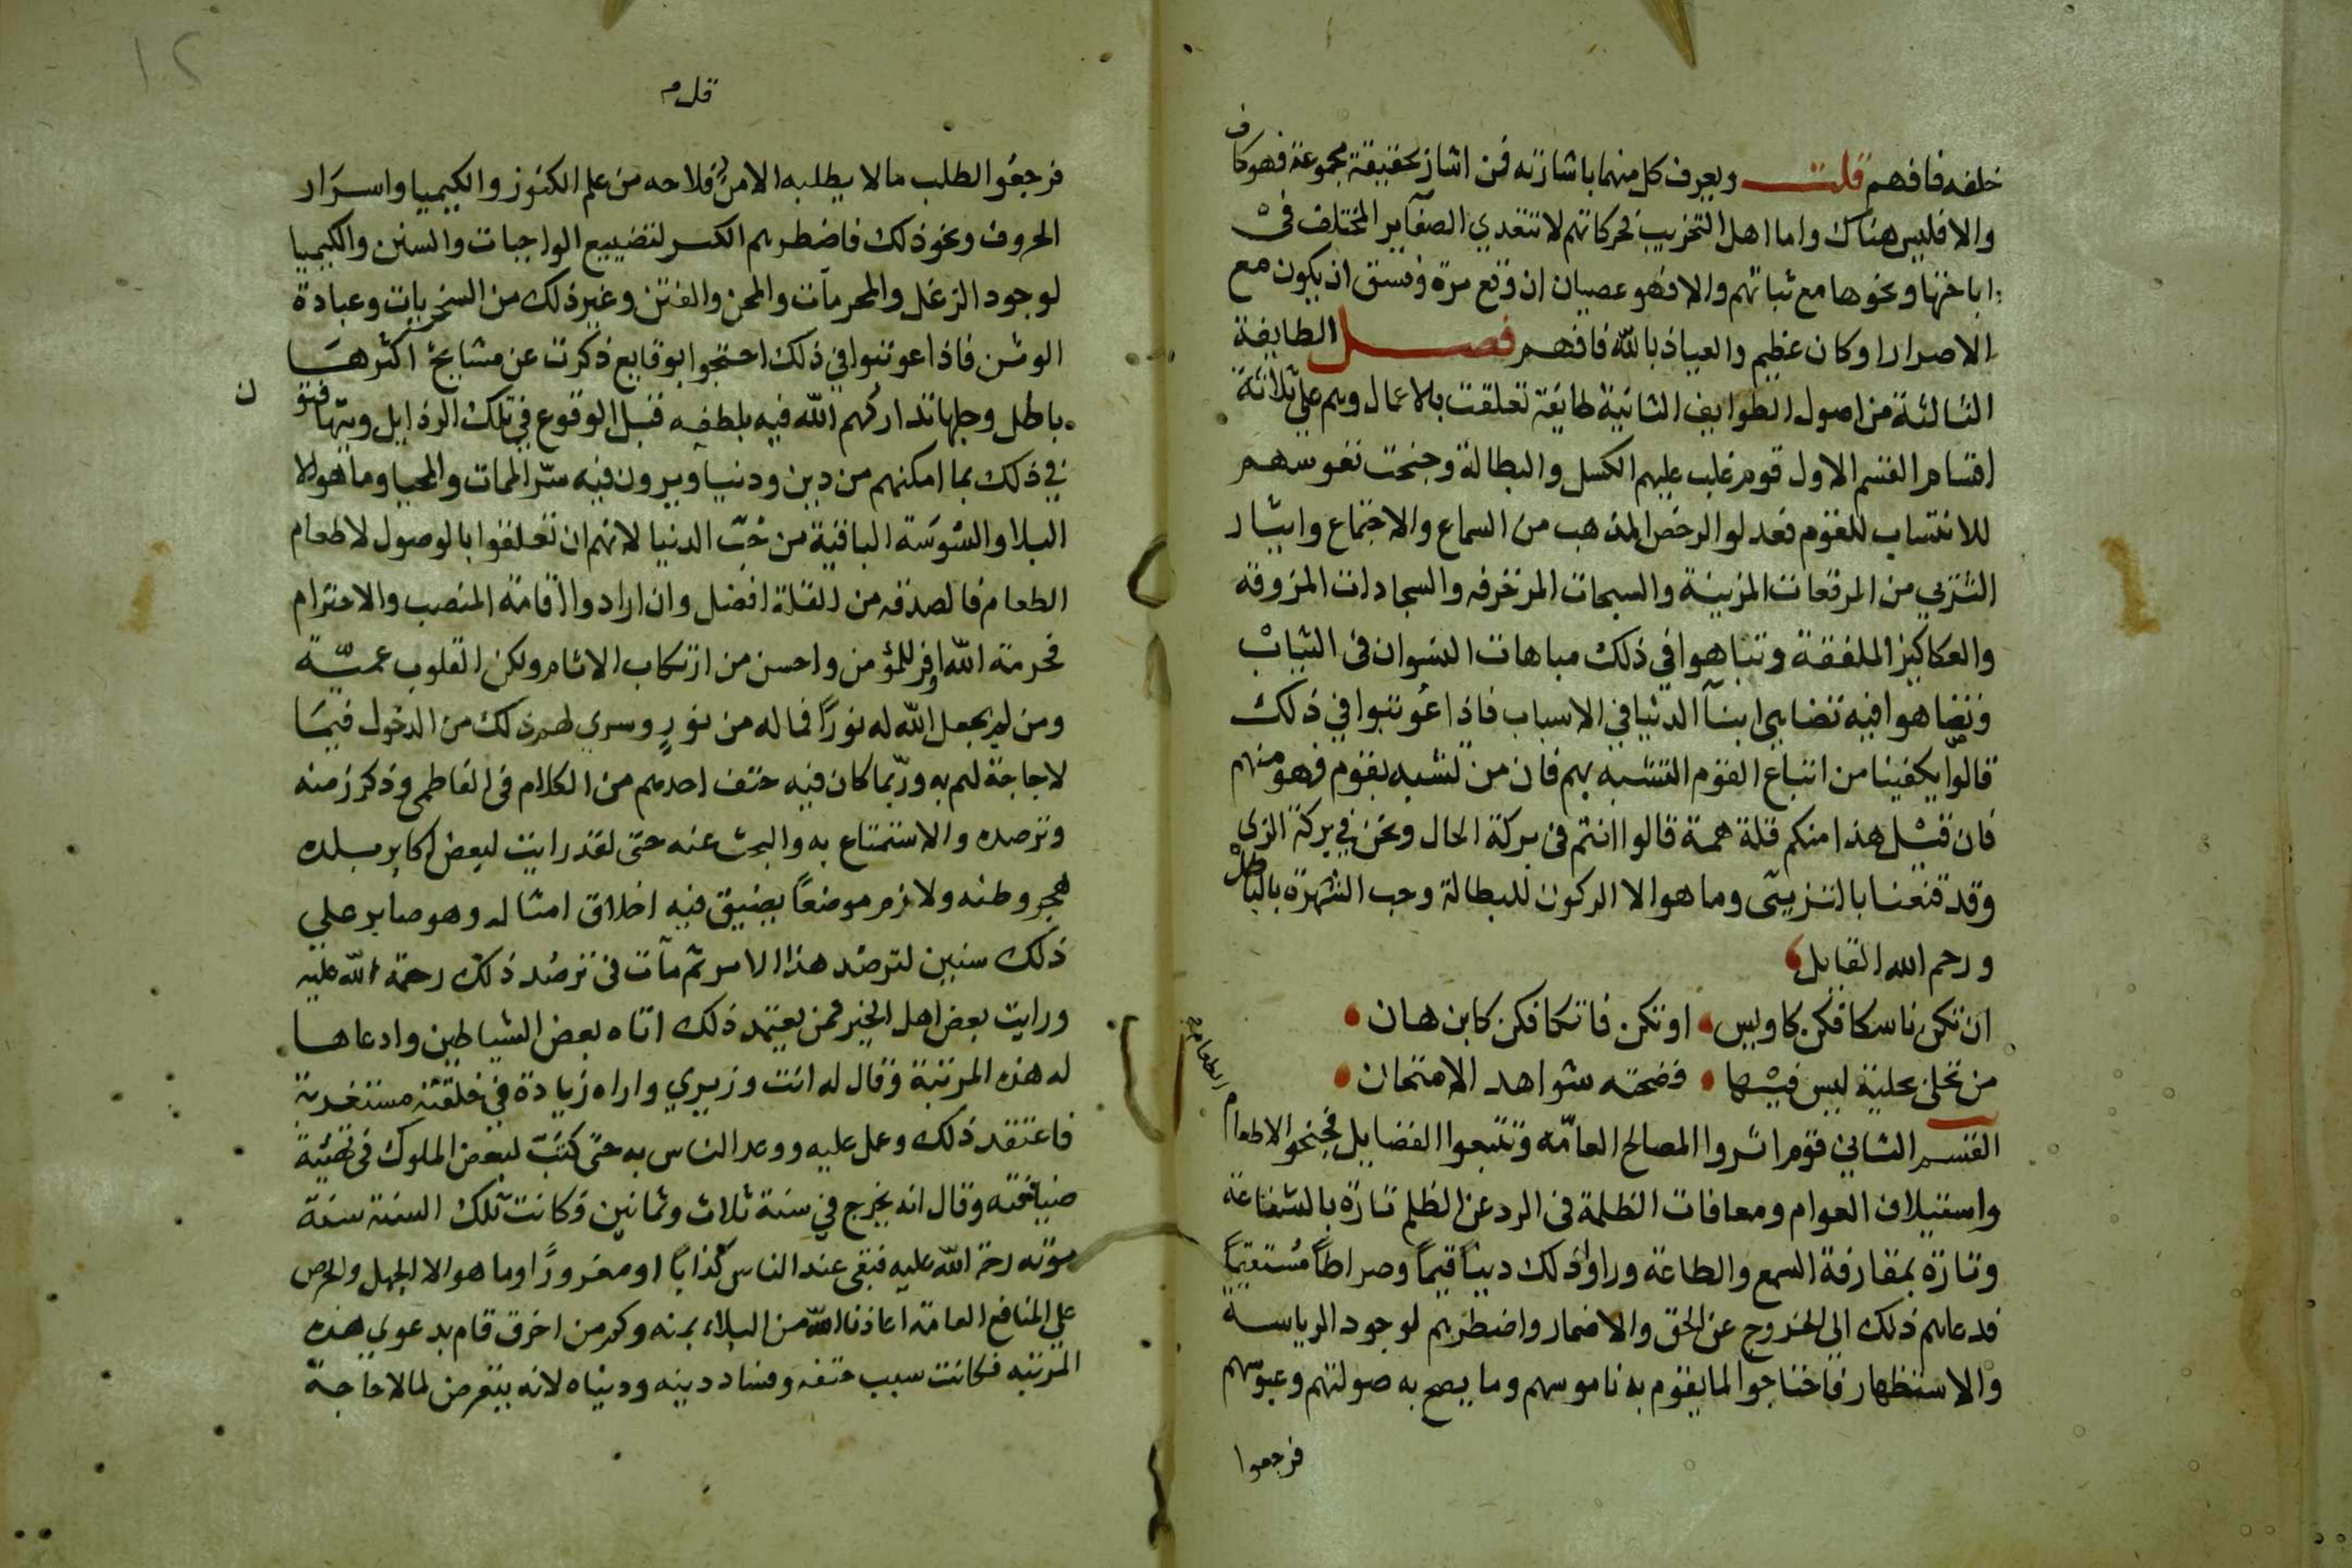 خلفه فافهم قلت ويعرف كل منهما باشارته فمن اشار بحقيقة مجموعة فهو كاف
والا فليس هناك واما اهل التخريب فحركاتهم لا تتعدي الصغآير المختلف في
اباحتها ونحوها مع ثباتهم والا فهو عصيان ان وقع مرة وفسق ان يكون مع
الاصرار او كان عظيم والعياذ بالله فافهم فصل الطايفة
الثالثة من اصول الطوايف الثانية طايفة تعلقت بالاعمال وهم علي ثلاثة
اقسام القسم الاول قوم غلب عليهم الكسل والبطالة وجنحت نفوسهم
للانتساب للقوم فعدلوا لرخص المذهب من السماع والاجتماع وايثار
التزيي من المرقعات المزينة والسبحات المزخرفه والسجادات المزوقه
والعكاكيز الملفقة وتباهوا في ذلك مباهات النسوان في الثياب
وتضاهوا فيه تضاهي ابنآ الدنيا في الاسباب فاذا عُوتبوا في ذلك
قالوا يكفينا من اتباع القوم التشبه بهم فان من تشبه بقوم فهو منهم
فان قيل هذا منكم قلة همة قالوا انتم في بركة الحال ونحن في بركة الزي
وقد قنعنا بالتزيي وما هو الا الركون للبطالة وحب الشهرة بالباطل
ورحم الله القايل
ان تكن ناسكا فكن كاويس او تكن فاتكا فكن كابن هان
من تحلى بحلية ليس فيها فضحته شواهد الامتحان
القسم الثاني قوم اثروا المصالح العامّه وتتبعوا الفضايل فجنحوا لاطعام الطعام
واستيلاف العوام ومعافات الظلمة في الرد عن الظلم تارة بالشفاعة
وتارة بمقارفة السمع والطاعة وراوا ذلك ديناً قيماً وصراطاً مُستقيماً
فدعاهم ذلك الي الخروج عن الحق والاضمار واضطرهم لوجود الرياسة
والاستظهار فاحتاجوا لما يقوم به ناموسهم وما يصح به صولتهم وعبوّسهم
فرجعوا
قل م
فرجعُوا لطلب ما لا يطلبه الا من فلاحه من علم الكنوز والكيميا واسرَار
الحروف ونحو ذلك فاضطرهم الكسر لتضييع الواجبات والسنن والكيميا
لوجود الزغل والمحرمات والمحن والفتن وغير ذلك من السخريات وعبادة
الوثن فاذا عوتبوا في ذلك احتجوا بوقايع ذكرت عن مشايخ اكثرها
باطل وجلها تداركهم الله فيه بلطفه قبل الوقوع في تلك الرذايل ويتهافتون
في ذلك بما امكنهم من دين ودنيا ويرون فيه سرّ الممات والمحيا وما هو الا
البلا والشوسَة الباقية من حُبّ الدنيا لانهم ان تعلقوا بالوصول لاطعام
الطعام فالصدقه من القلة افضل وان ارادوا اقامة المنصب والاحترام
فحرمة الله اوفر للمؤمن واحسن من ارتكاب الاثام ولكن القلوب عميّة
ومن لم يجعل الله له نورًا فما له من نورٍ وسري لهم ذلك من الدخول فيمَا
لا حاجة لهم به وربّما كان فيه حتف احدهم من الكلام في الفاطمي وذكر زمنه
وترصده والاستمتاع به والبحث عنه حتى لقد رايت لبعض اكابر بلده
هجر وطنه ولازم موضعاً يضيق فيه اخلاق امثاله وهو صابر علي
ذلك سنين لترصد هذا الامر ثم مآت في ترصد ذلك رحمة الله عليه
ورايت بعض اهل الخير ممن يعتمد ذلك اتاه بعض الشياطين وادعا ها
له هذه المرتبة وقال له انت وزيري واراه زيادة في خلقته مستغربة
فاعتقد ذلك وعمل عليه ووعد الناس به حتى كتبَ لبعض الملوك في تهئية
ضيافته وقال انه يخرج في سنة ثلاث وثمانين فكانت تلك السنة سنة
موته رحمة الله عليه فبقى عند الناس كذابًا او مغرورًا وما هو الا الجهل والحرص
علي المنافع العامة اعاذنا الله من البلاء بمنه وكم من اخرق قام بدعوي هذه
المرتبه فكانت سبب حتفه وفساد دينه ودنياه لانه يتعرض لما لا حاجة